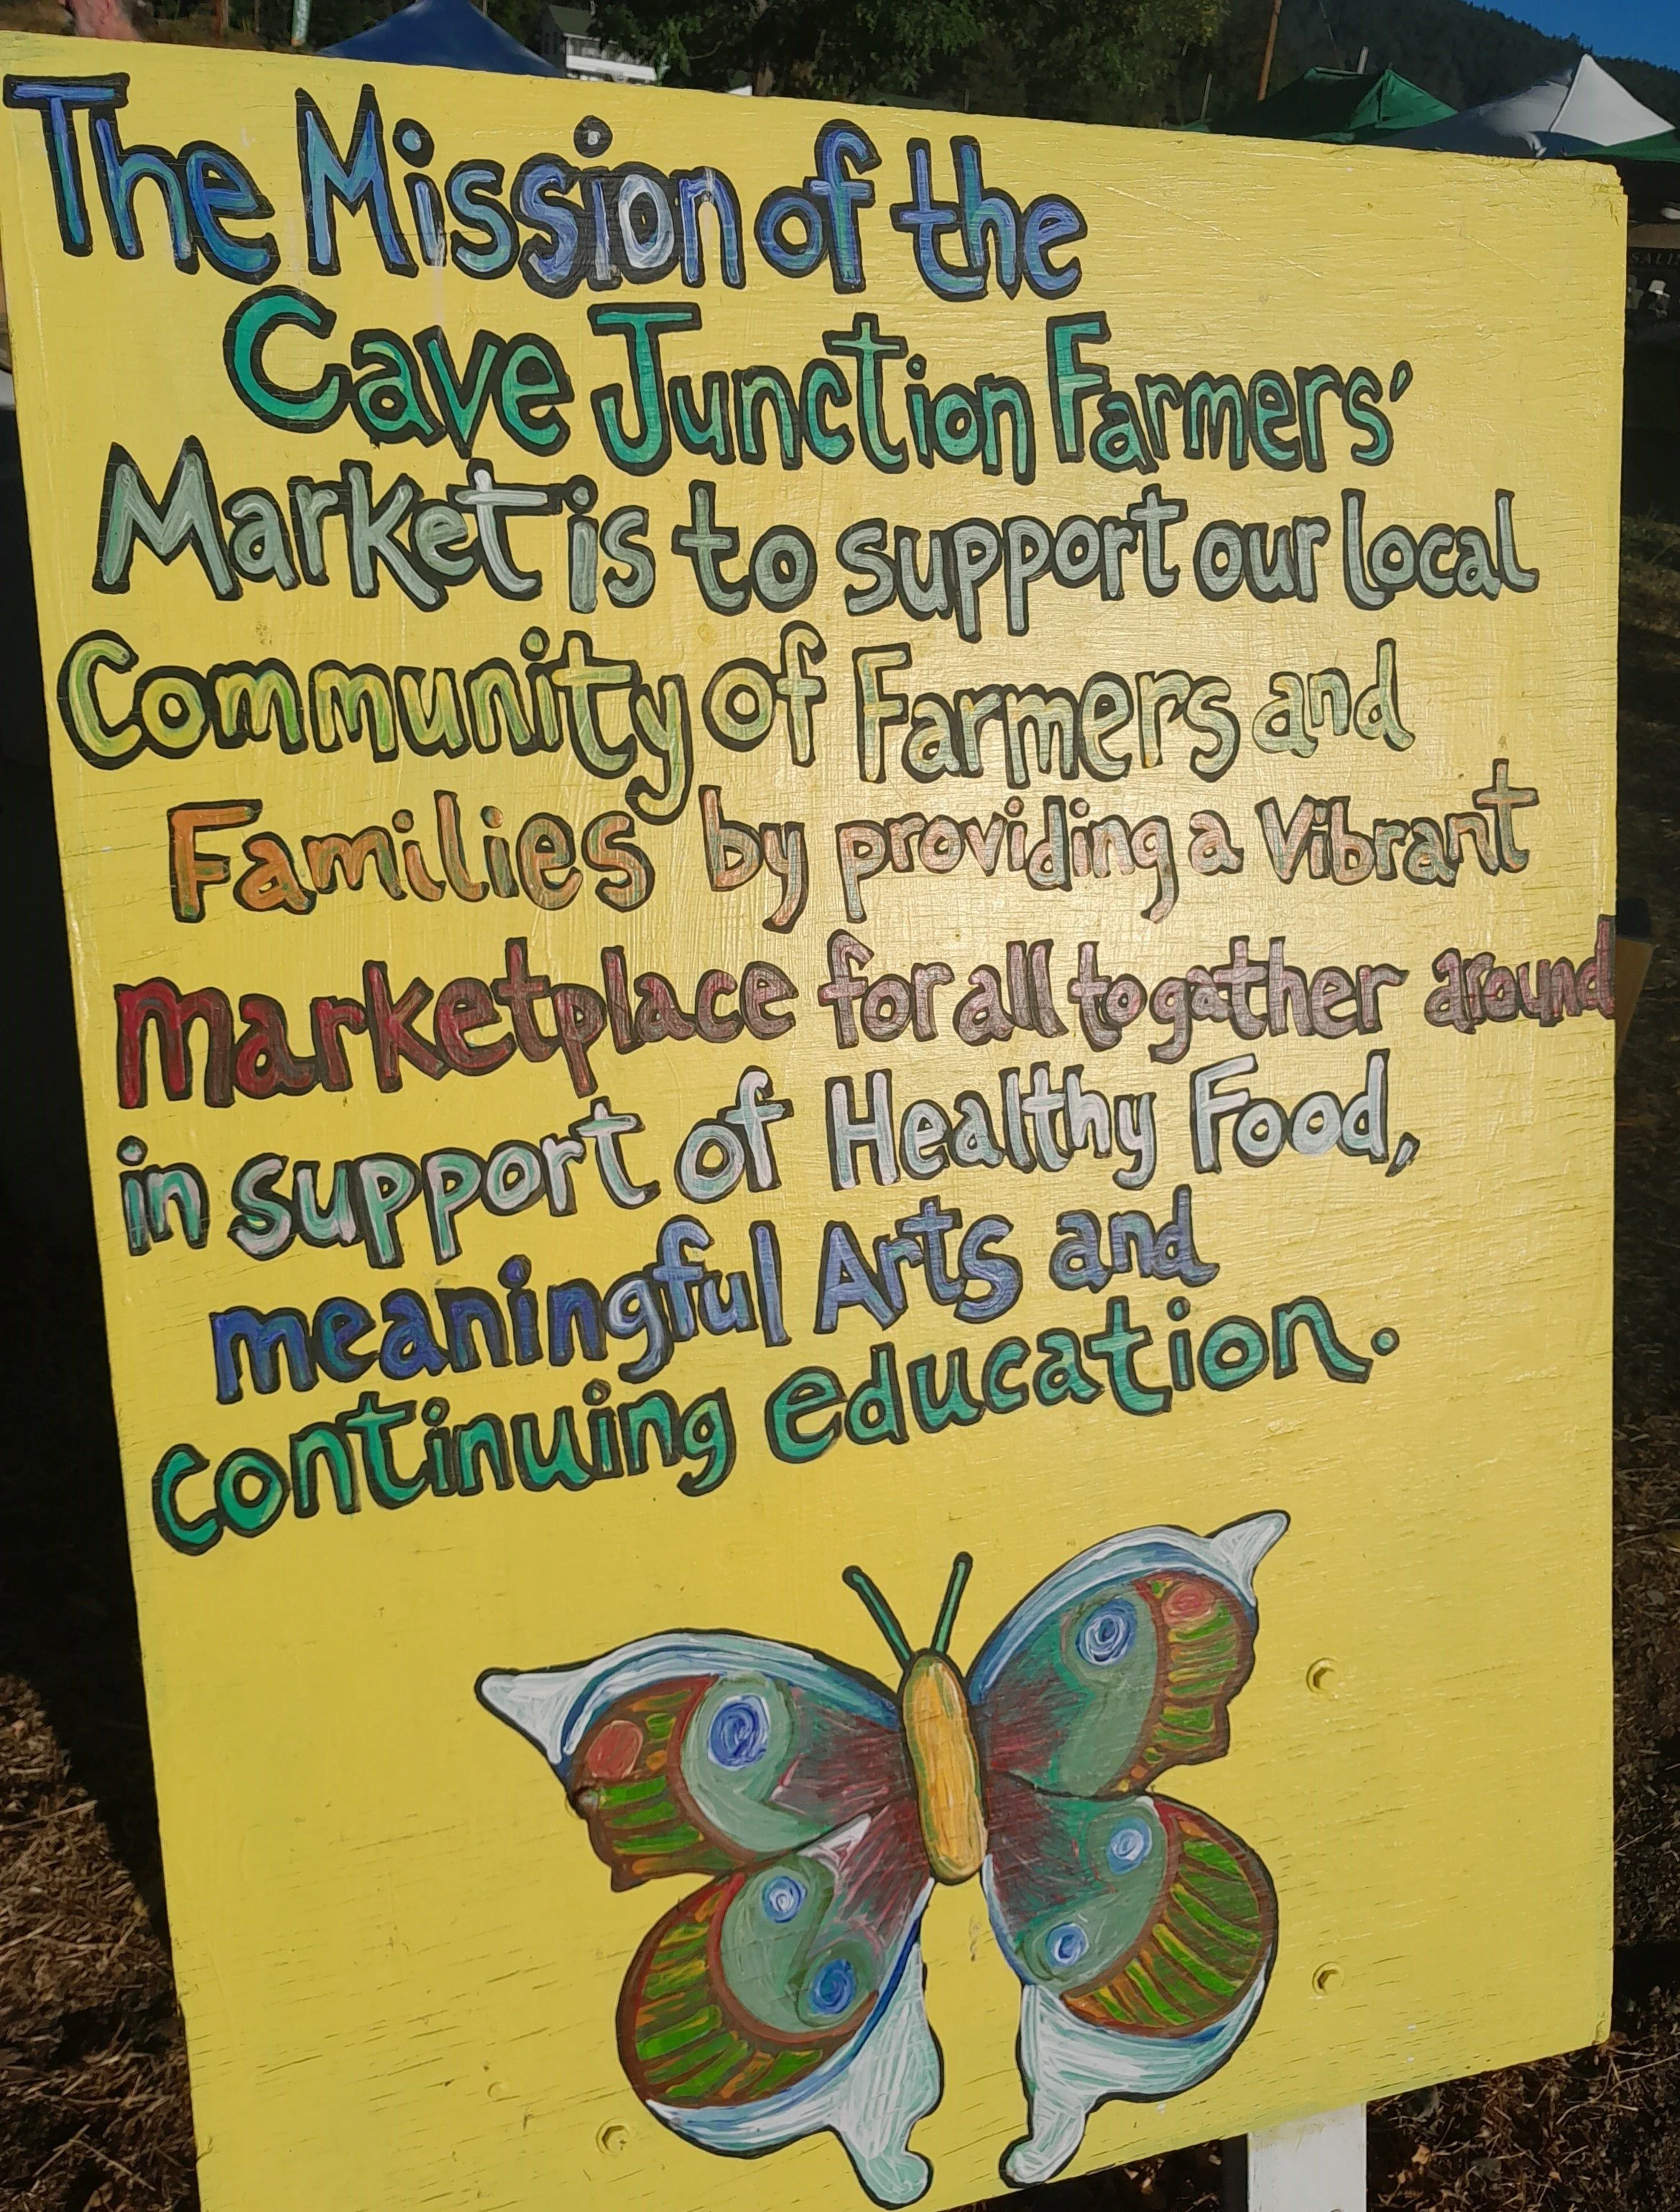 The Mission of the
Cave Junction Farmers'
Market is to support our local
Community of Farmers and
Families by providing a Vibrant
marketplace for all to gather around
in support of Healthy Food,
meaningful Arts and
continuing education.